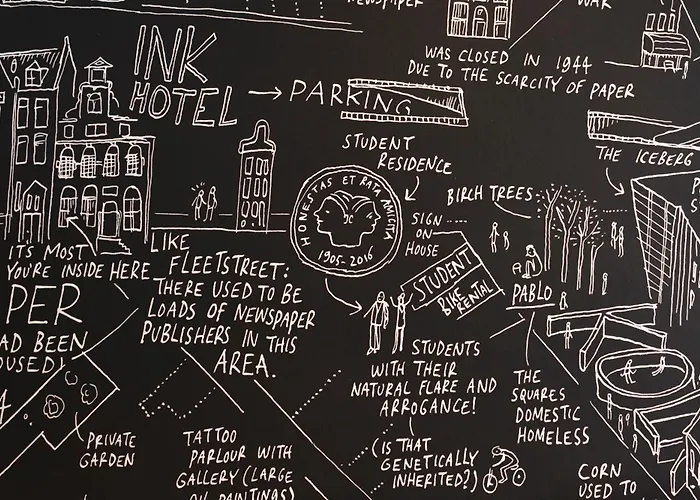 NEWSPAPER
WAR
WAS CLOSED IN 1944
DUE TO THE SCARCITY OF PAPER
INK
HOTEL
PARKING
STUDENT
RESIDENCE
THE ICEBERG
HONESTAS ET RATA AMICITA
1905-2016
BIRCH TREES
SIGN
ON
HOUSE
STUDENT
BIKE
RENTAL
PABLO
ITS MOST
YOU'RE INSIDE HERE
PER
AD BEEN
OUSED)
LIKE
FLEETSTREET:
THERE USED TO BE
LOADS OF NEWSPAPER
PUBLISHERS IN THIS
AREA.
STUDENTS
WITH THEIR
NATURAL FLARE AND
ARROGANCE!
(IS THAT
GENETICALLY
INHERITED?)
THE
SQUARES
DOMESTIC
HOMELESS
PRIVATE
GARDEN
TATTOO
PARLOUR WITH
GALLERY (LARGE
OIL PAINTINGS)
CORN
USED TO